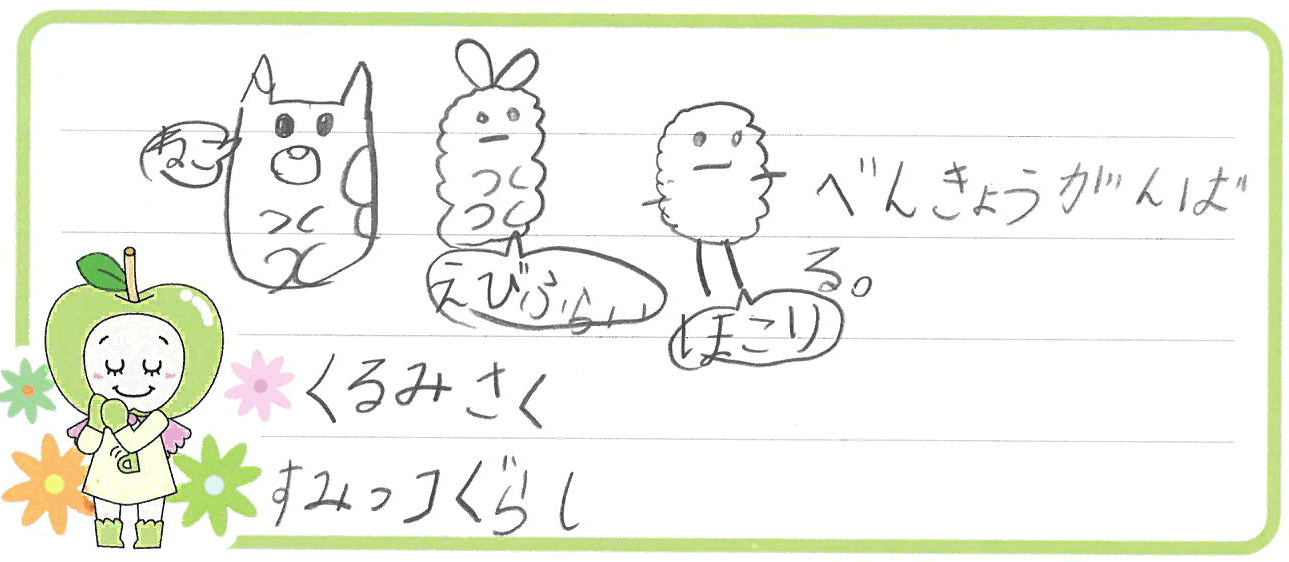 ねこ
えびふらい
ほこり
べんきょうがんば
る。
くるみさく
すみっコぐらし